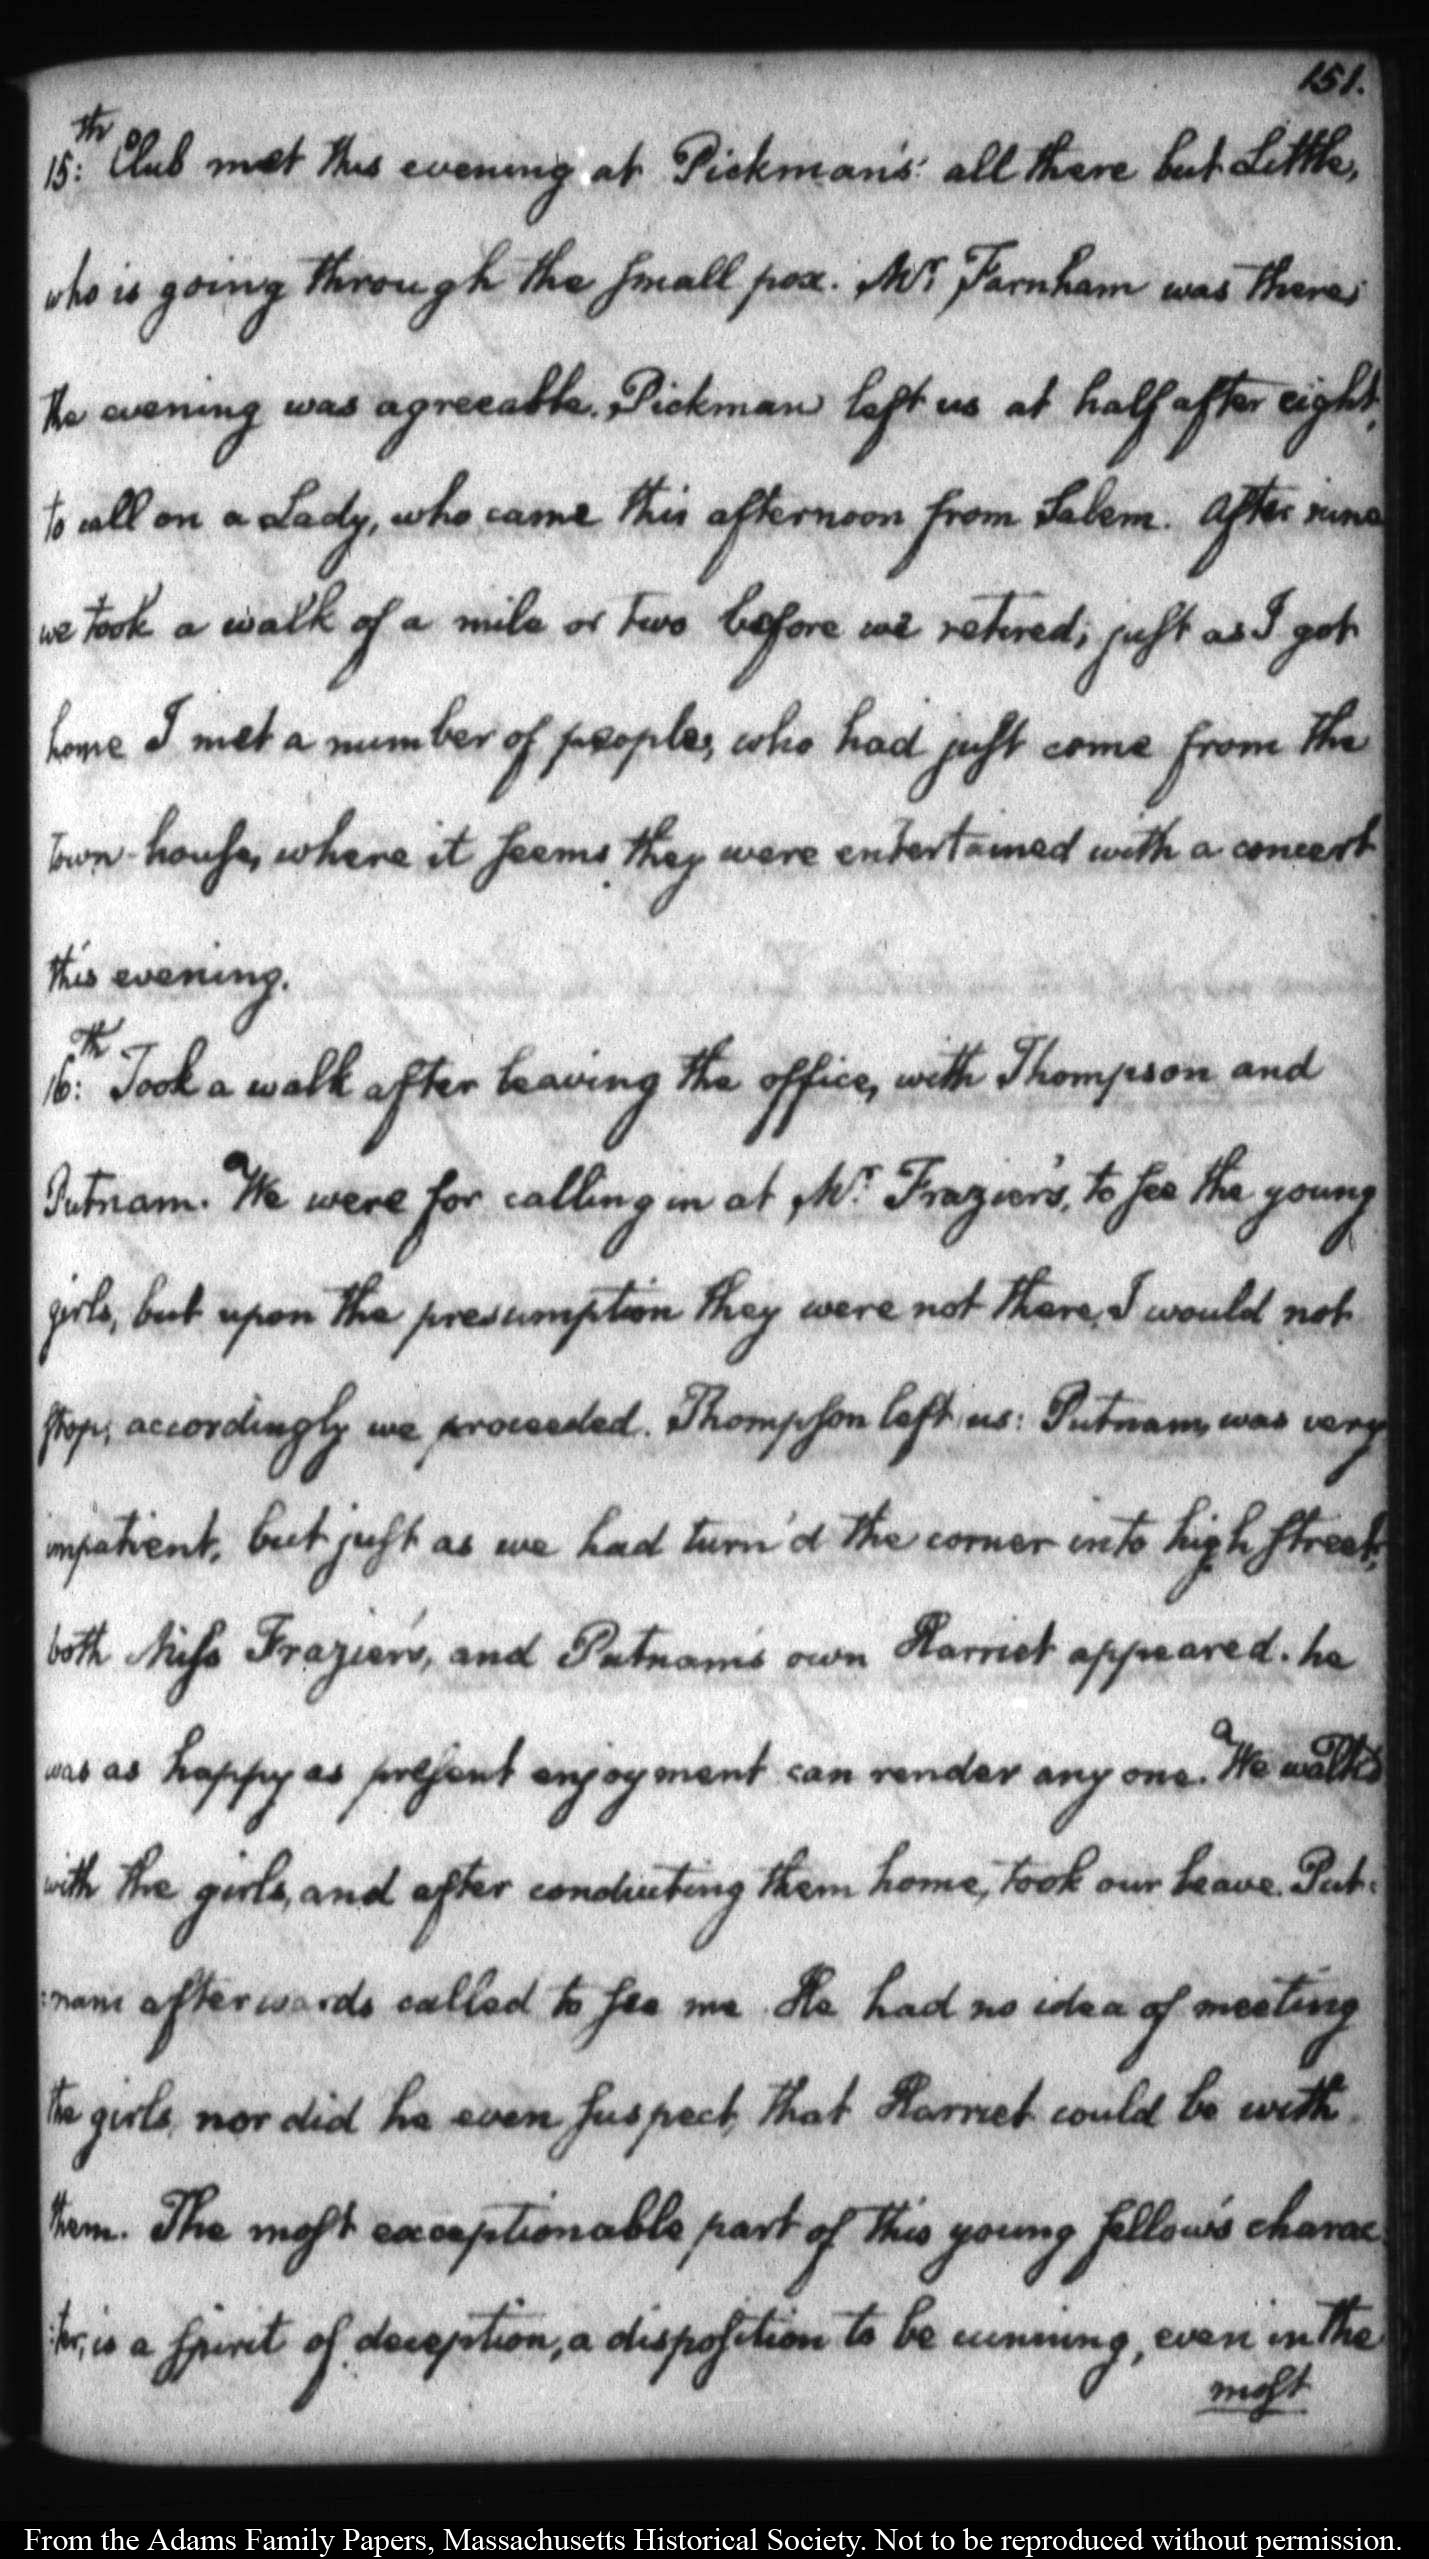 151.
15:th Club met this evening at Pickman's: all there but Little,
who is going through the small pox. Mr. Farnham was there;
the evening was agreeable. Pickman left us at half after eight,
to call on a Lady, who came this afternoon from Salem. After nine
we took a walk of a mile or two before we retired; just as I got
home I met a number of people, who had just come from the
town-house, where it seems they were entertained with a concert
this evening.
16:th Took a walk after leaving the office, with Thompson and
Putnam. We were for calling in at Mr. Frazier's, to see the young
girls, but upon the presumption they were not there, I would not
stop; accordingly we proceeded. Thompson left us: Putnam, was very
impatient, but just as we had turn'd the corner into high street,
both Miss Frazier's, and Putnam's own Harriet appeared. he
was as happy as present enjoyment can render any one. We walk'd
with the girls, and after conducting them home, took our leave. Put:
:nam afterwards called to see me. He had no idea of meeting
the girls, nor did he even suspect, that Harriet could be with
them. The most exceptionable part of this young fellow's charac:
:ter, is a spirit of deception, a disposition to be cunning, even in the
most
From the Adams Family Papers, Massachusetts Historical Society. Not to be reproduced without permission.